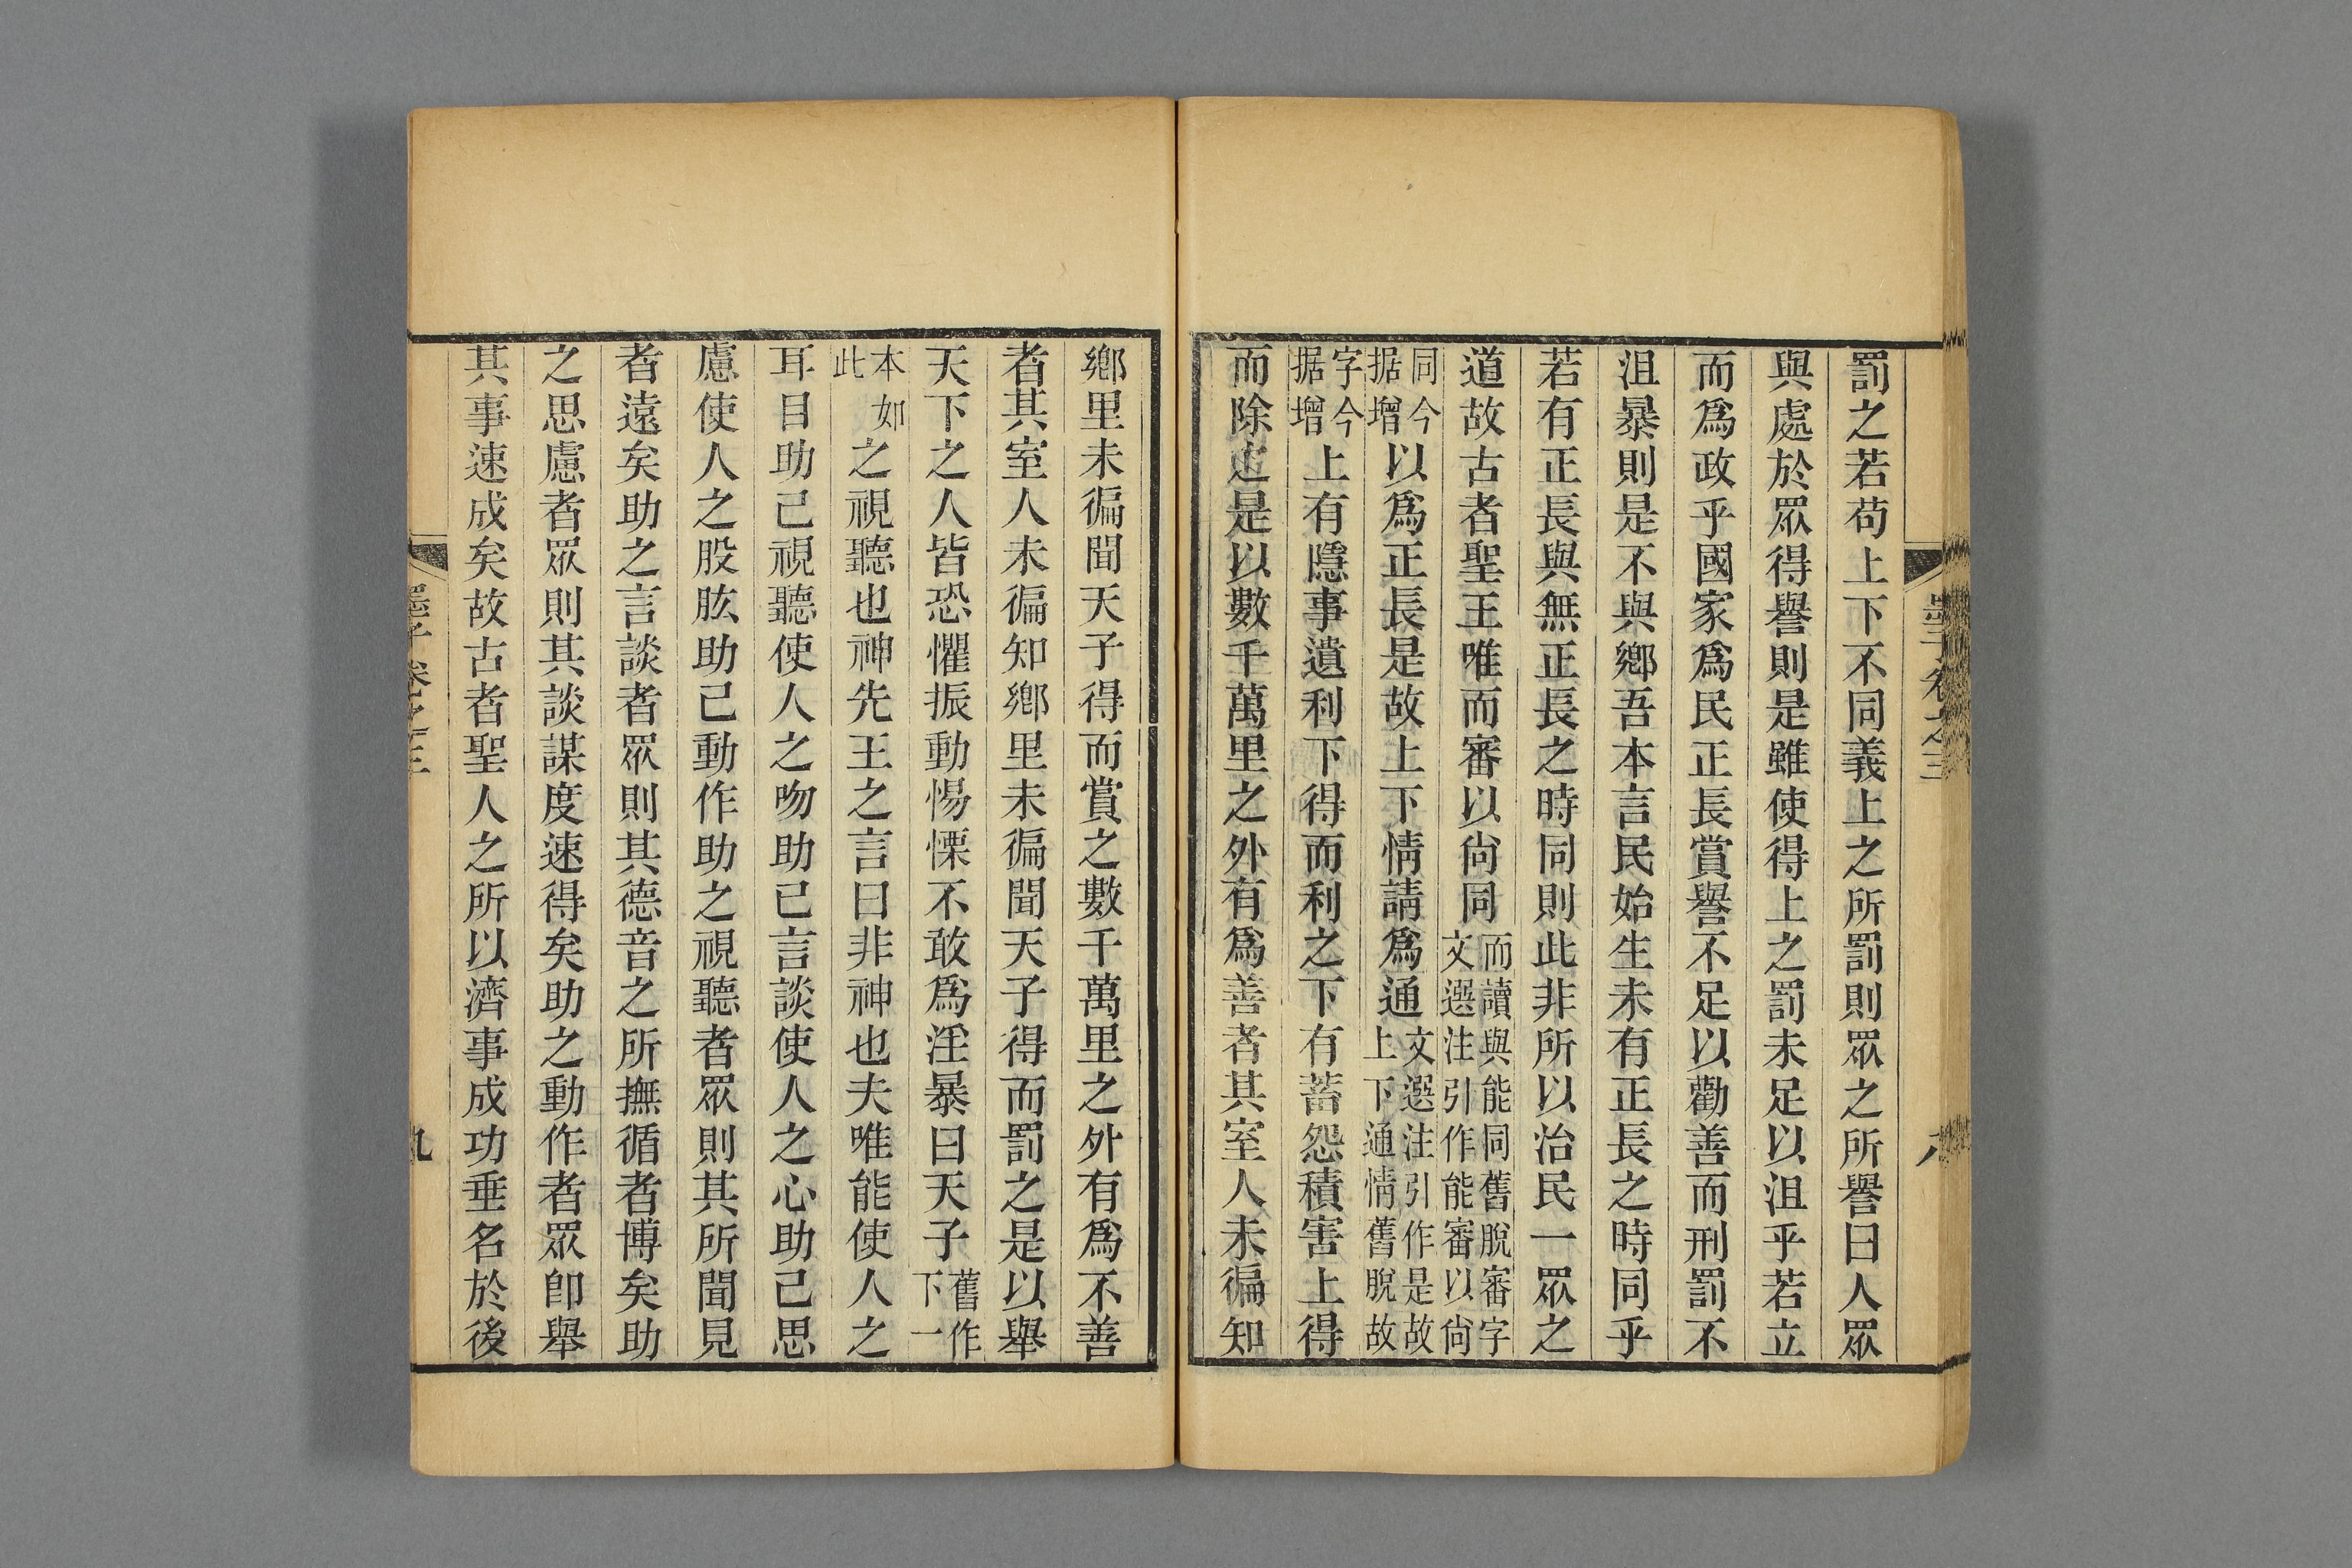 罰之若苟上下不同義上之所罰則眾之所譽曰人眾
與處於眾得譽則是雖使得上之罰未足以沮乎若立
而爲政乎國家爲民正長賞譽不足以勸善而刑罰不
沮暴則是不與鄉吾本言民始生未有正長之時同乎
若有正長與無正長之時同則此非所以治民一眾之
道故古者聖王唯而審以尙同而讀與能同舊脫審字文選注引作能審以尙
同今据增以爲正長是故上下情請爲通文選注引作是故上下通情舊脫故
字今据增上有隱事遺利下得而利之下有蓄怨積害上得
而除之是以數千萬里之外有爲善者其室人未徧知
鄉里未徧聞天子得而賞之數千萬里之外有爲不善
者其室人未徧知鄉里未徧聞天子得而罰之是以舉
天下之人皆恐懼振動惕慄不敢爲淫暴曰天子舊作下一
本如此之視聽也神先王之言曰非神也夫唯能使人之
耳目助己視聽使人之吻助己言談使人之心助己思
慮使人之股肱助己動作助之視聽者眾則其所聞見
者遠矣助之言談者眾則其德音之所撫循者博矣助
之思慮者眾則其談謀度速得矣助之動作者眾卽舉
其事速成矣故古者聖人之所以濟事成功垂名於後
墨子卷之三
九